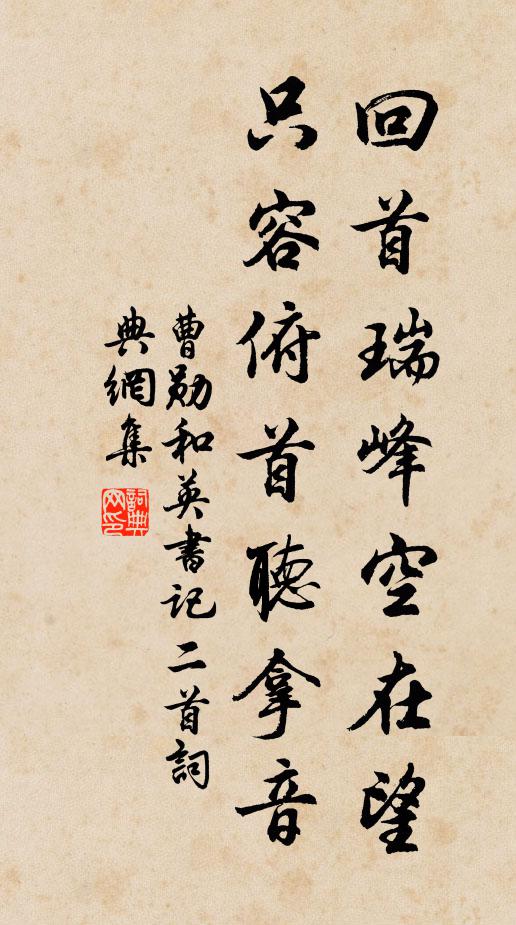 回首瑞峰空在望
只容俯首聽拿音
曹勛和英書記二首詞
典網集
詞典
网印